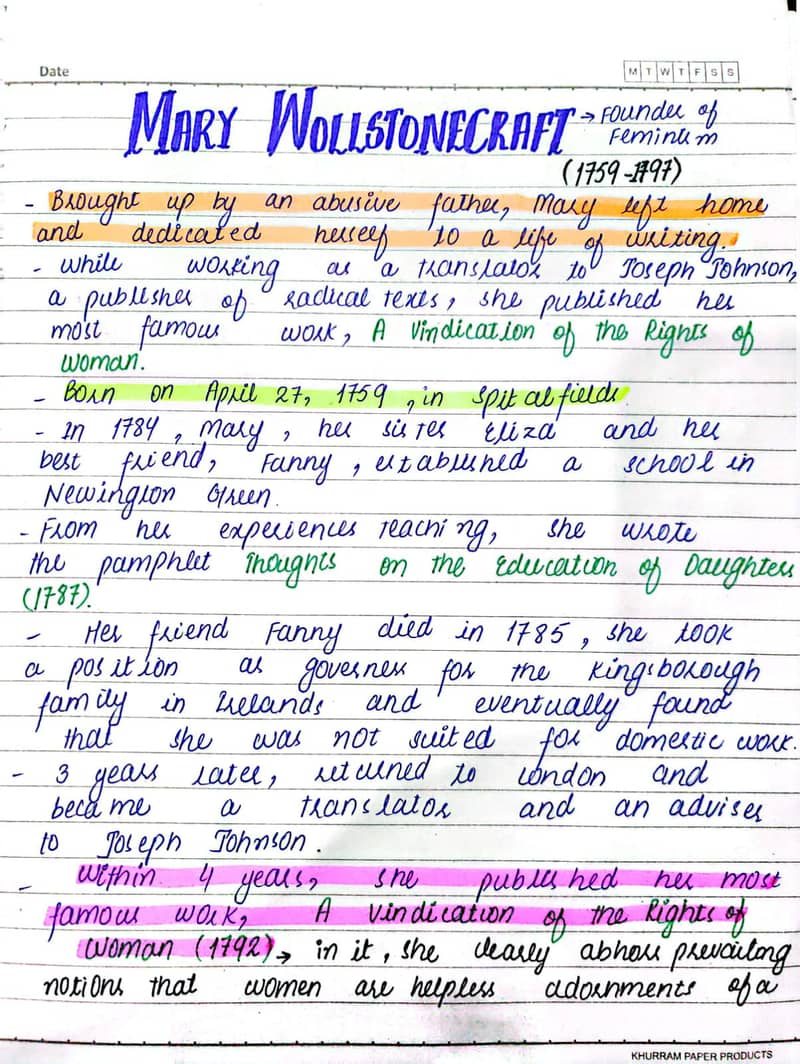 Date
M T W T F S S
MARY WOLLSTONECRAFT → Founder of
Feminism
(1759-1797)
- Brought up by an abusive father, Mary left home
and dedicated herself to a life of writing.
- while working as a translator to Joseph Johnson,
a publisher of radical texts, she published her
most famous work, A Vindication of the Rights of
woman.
- Born on April 27, 1759, in Spitalfields.
- In 1784, Mary, her sister Eliza and her
best friend, Fanny, established a school in
Newington Green.
- From her experiences teaching, she wrote
the pamphlet Thoughts on the Education of Daughters
(1787).
- Her friend Fanny died in 1785, she took
a position as governess for the Kingsborough
family in Irelands and eventually found
that she was not suited for domestic work.
- 3 years later, returned to London and
became a translator and an adviser
to Joseph Johnson.
- within 4 years, she published her most
famous work, A Vindication of the Rights of
Woman (1792) → in it, she clearly abhors prevailing
notions that women are helpless adornments of a
KHURRAM PAPER PRODUCTS